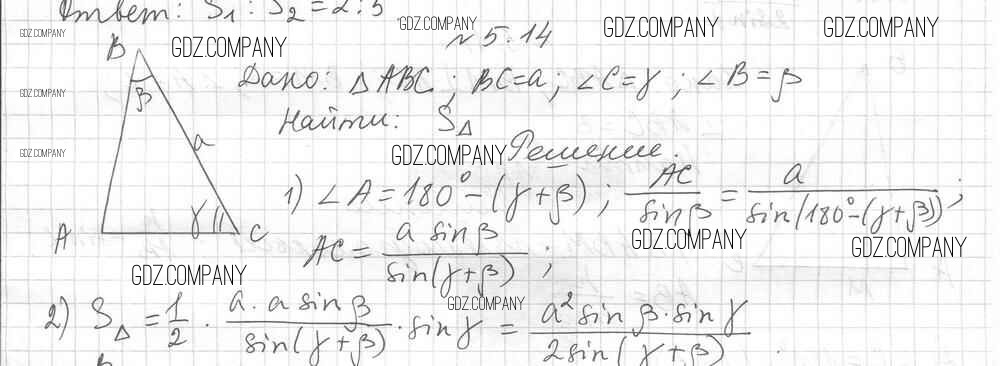 Ответ: S₁ : S₂ = 2 : 5
GDZ.COMPANY
GDZ.COMPANY
GDZ.COMPANY
GDZ.COMPANY
GDZ.COMPANY
№ 5.14
B
Дано: △ABC; BC=a; ∠C=γ; ∠B=β
GDZ.COMPANY
β
Найти: S△
a
GDZ.COMPANY
GDZ.COMPANY
Решение.
1) ∠A = 180° − (γ+β); AC / sin β = a / sin(180° − (γ+β));
A
γ
C
AC = a sin β / sin(γ+β);
GDZ.COMPANY
GDZ.COMPANY
GDZ.COMPANY
2) S△ = 1/2 · a · a sin β / sin(γ+β) · sin γ = a² sin β · sin γ / 2 sin(γ+β)
GDZ.COMPANY